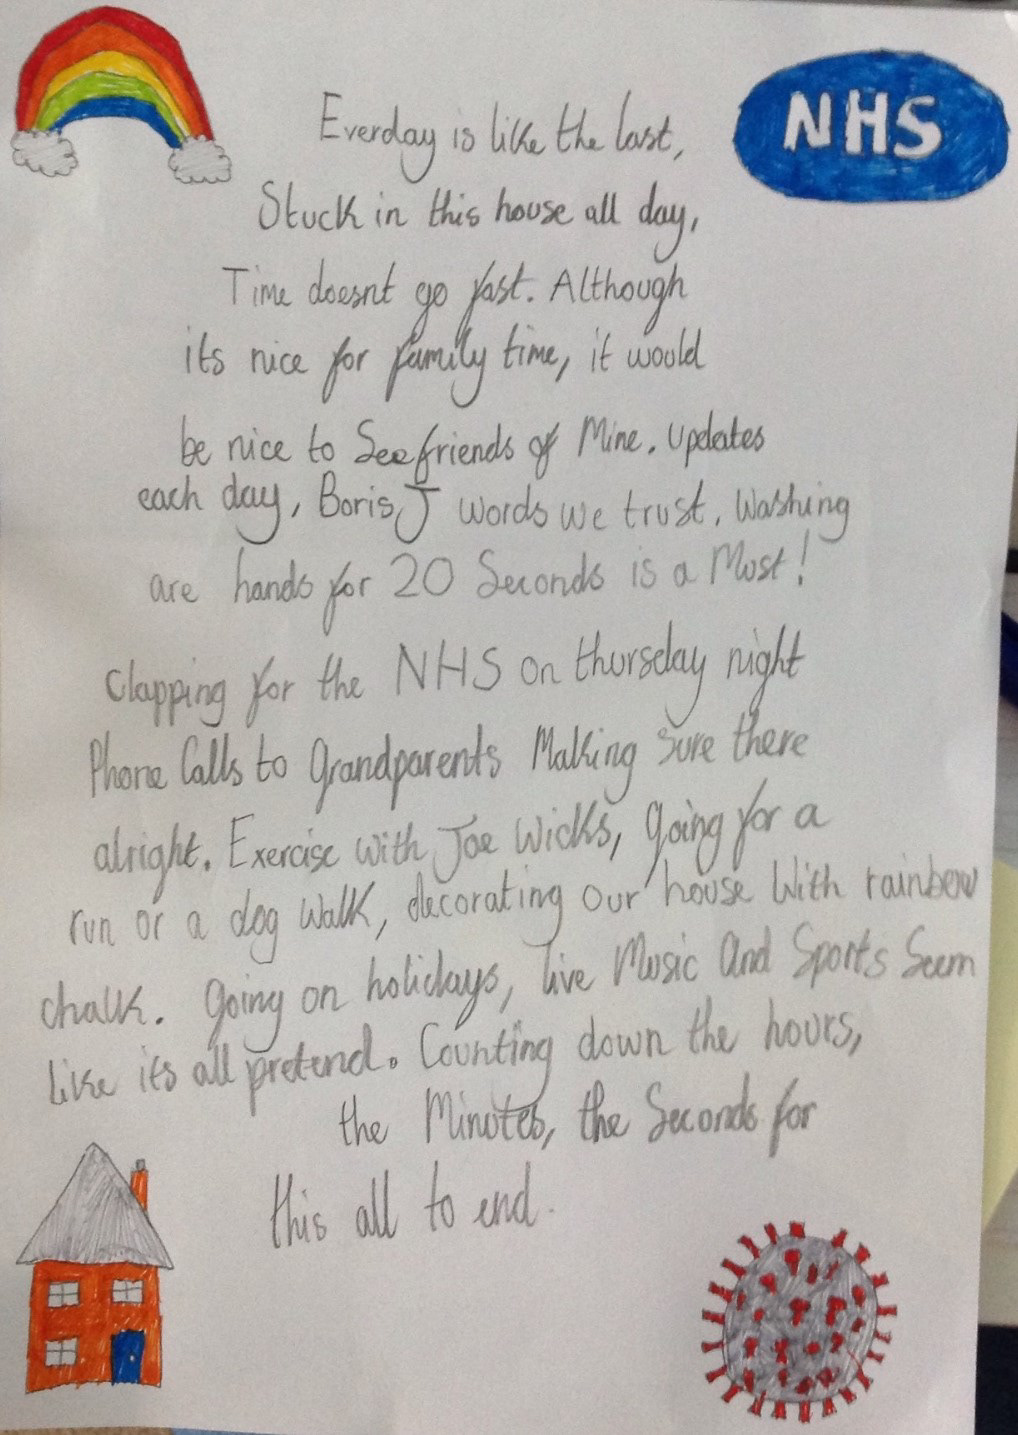 NHS
Everday is like the last,
Stuck in this house all day,
Time doesnt go fast. Although
its nice for family time, it would
be nice to See friends of Mine. Updates
each day, Boris J words we trust. Washing
are hands for 20 Seconds is a Must!
Clapping for the NHS on thursday night
Phone Calls to Grandparents Making sure there
alright. Exercise with Joe Wicks, going for a
run or a dog walk, decorating our house With rainbow
chalk. Going on holidays, live Music And Sports Seem
like its all pretend. Counting down the hours,
the Minutes, the Seconds for
this all to end.